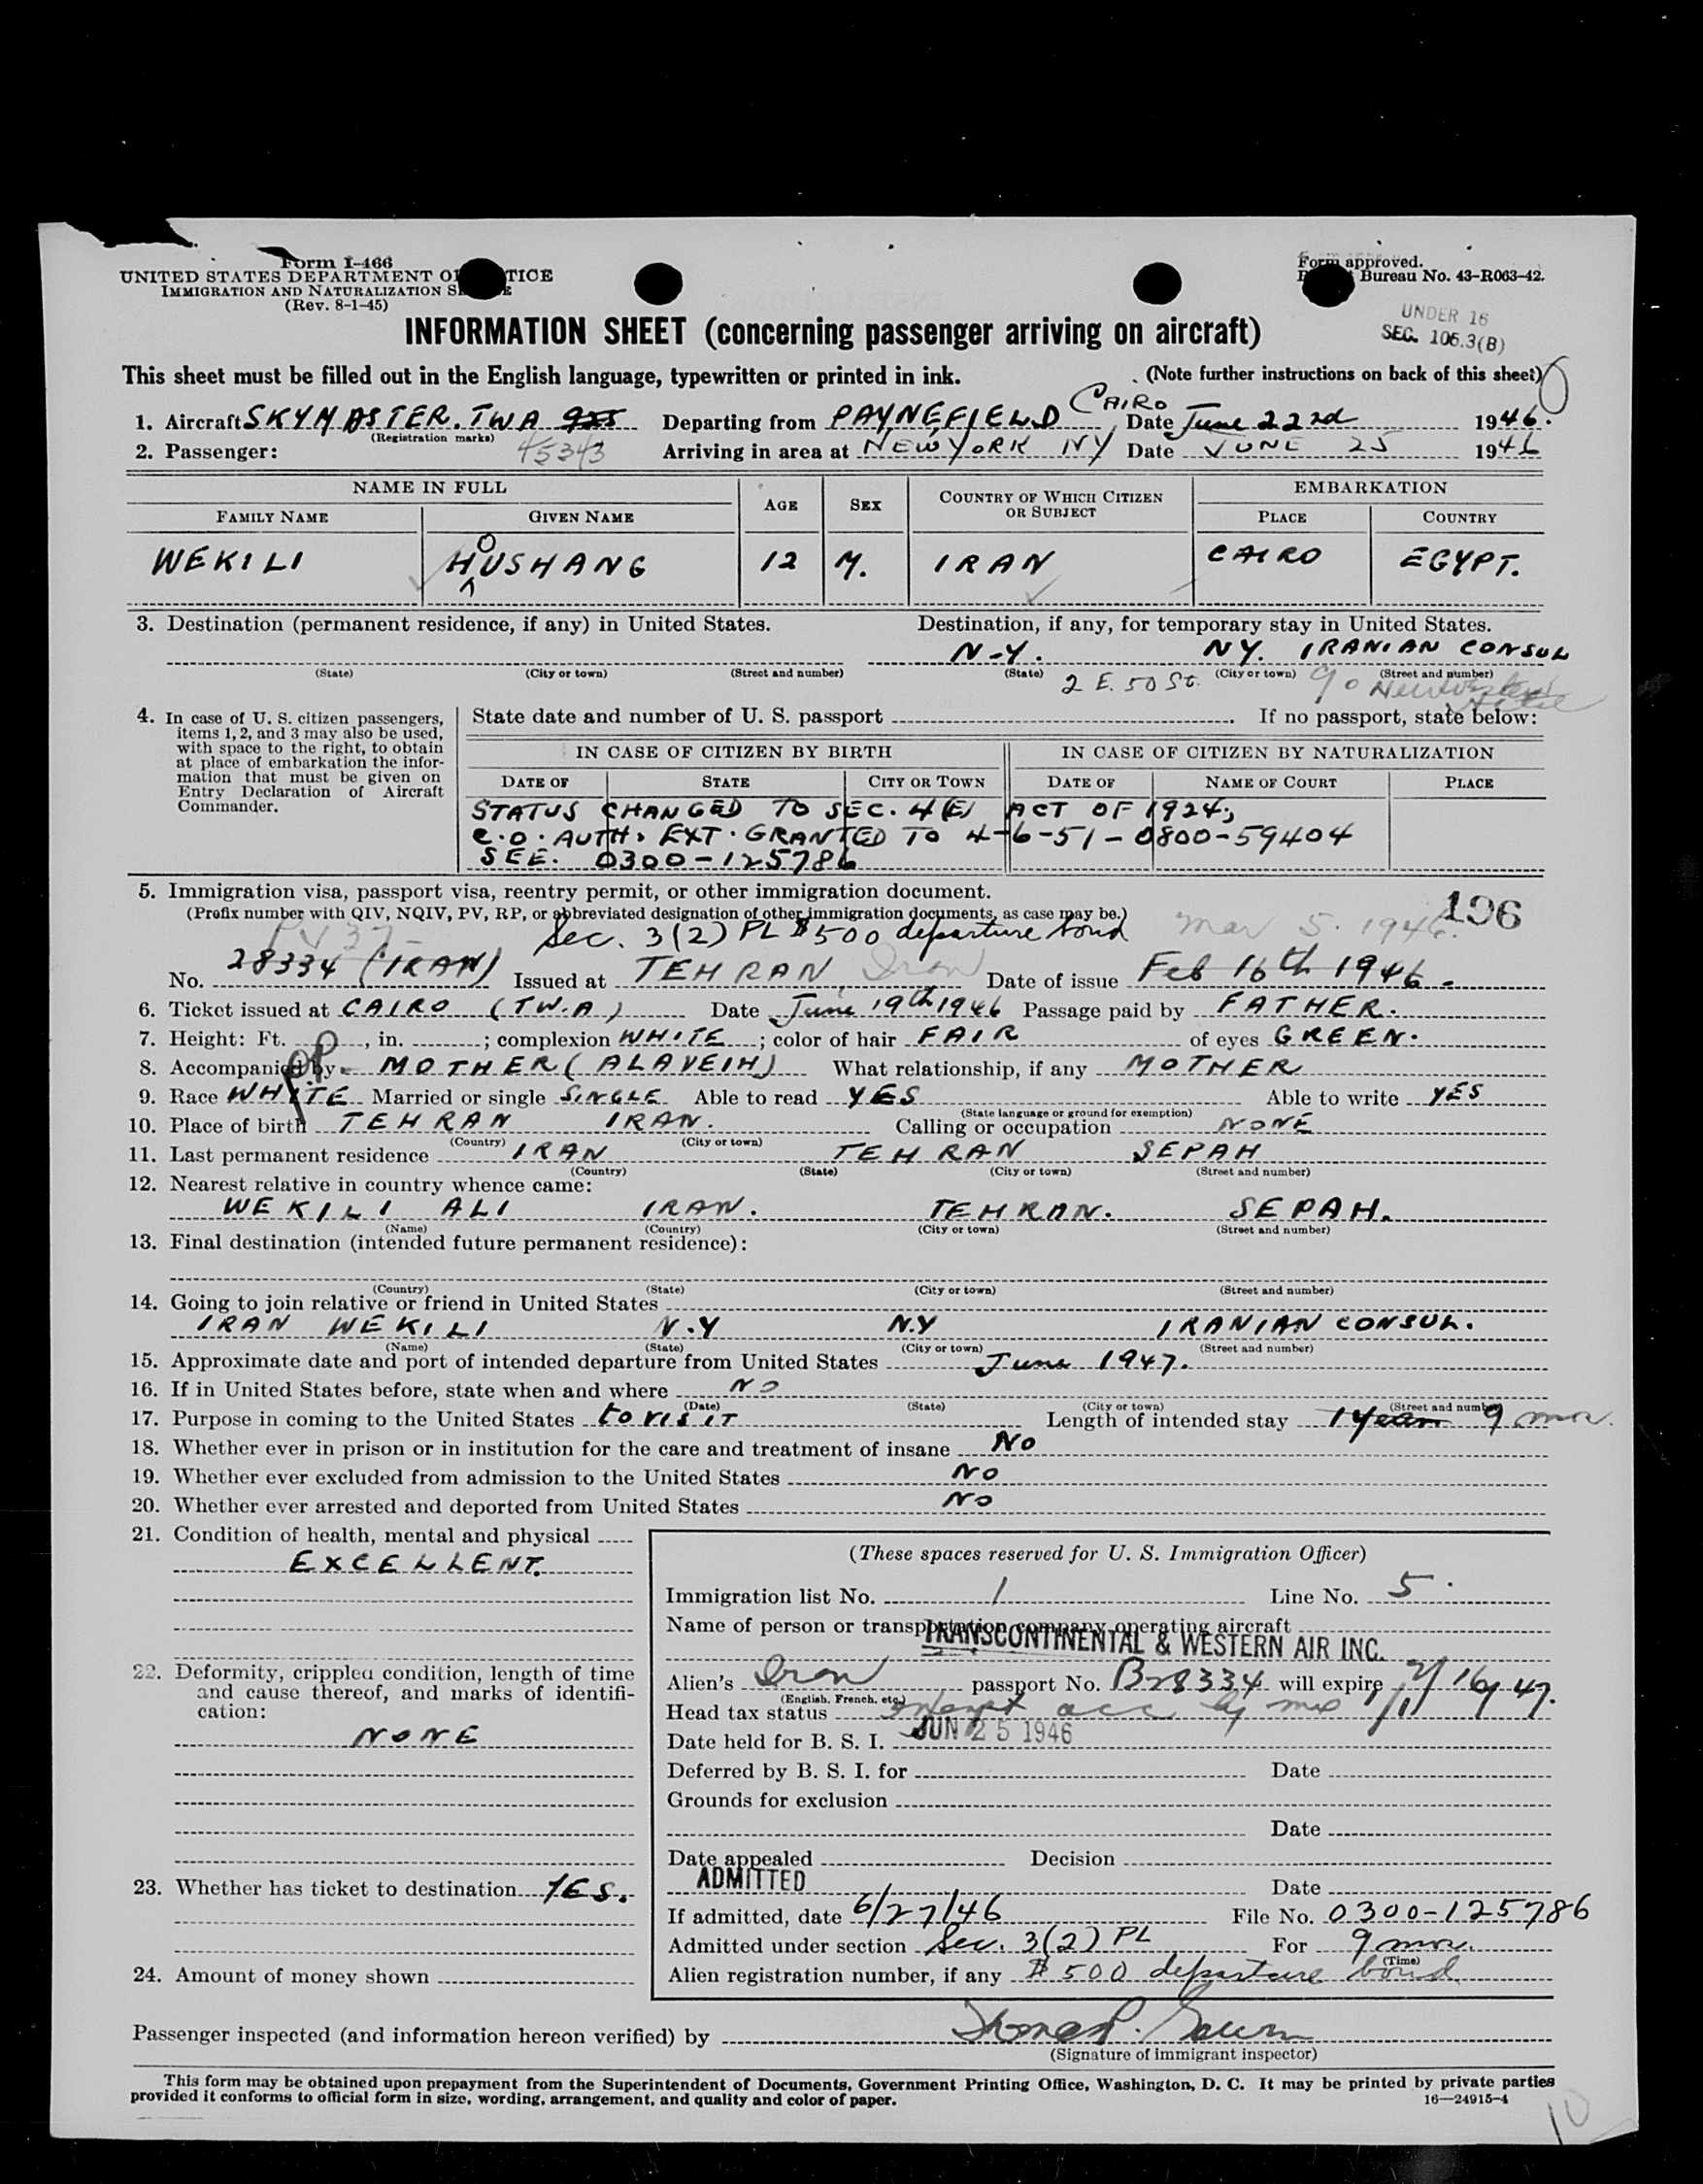 Form I-466
UNITED STATES DEPARTMENT OF TICE
IMMIGRATION AND NATURALIZATION S E
(Rev. 8-1-45)
Form approved.
Bureau No. 43-R063-42.
UNDER 16
SEC. 106.3(B)
INFORMATION SHEET (concerning passenger arriving on aircraft)
This sheet must be filled out in the English language, typewritten or printed in ink. (Note further instructions on back of this sheet)
1. Aircraft SKYMASTER. TWA 955 Departing from PAYNEFIELD CAIRO Date June 22nd 1946.
(Registration marks)
2. Passenger: 45343 Arriving in area at NEW YORK NY Date JUNE 25 1946
NAME IN FULL AGE SEX COUNTRY OF WHICH CITIZEN OR SUBJECT EMBARKATION
FAMILY NAME GIVEN NAME PLACE COUNTRY
WEKILI HOUSHANG 12 M. IRAN CAIRO EGYPT.
3. Destination (permanent residence, if any) in United States. Destination, if any, for temporary stay in United States.
N-Y. NY. IRANIAN CONSUL
(State) (City or town) (Street and number) (State) (City or town) (Street and number)
2 E. 50 St.
4. In case of U. S. citizen passengers, items 1, 2, and 3 may also be used, with space to the right, to obtain at place of embarkation the information that must be given on Entry Declaration of Aircraft Commander.
State date and number of U. S. passport . If no passport, state below:
IN CASE OF CITIZEN BY BIRTH IN CASE OF CITIZEN BY NATURALIZATION
DATE OF STATE CITY OR TOWN DATE OF NAME OF COURT PLACE
STATUS CHANGED TO SEC. 4(E) ACT OF 1924;
C.O. AUTH. EXT. GRANTED TO 4-6-51-0800-59404
SEE. 0300-125786
5. Immigration visa, passport visa, reentry permit, or other immigration document.
196
(Prefix number with QIV, NQIV, PV, RP, or abbreviated designation of other immigration documents, as case may be.)
PV 37 Sec. 3(2) PL $500 departure bond Mar 5. 1946.
No. 28334 (IRAN) Issued at TEHRAN, Iran Date of issue Feb 16th 1946.
6. Ticket issued at CAIRO (TW.A) Date June 19th 1946 Passage paid by FATHER.
7. Height: Ft. , in. ; complexion WHITE ; color of hair FAIR of eyes GREEN.
8. Accompanied by MOTHER (ALAVEIH) What relationship, if any MOTHER
9. Race WHITE Married or single SINGLE Able to read YES Able to write YES
(State language or ground for exemption)
10. Place of birth TEHRAN IRAN. Calling or occupation NONE
(Country) (City or town)
11. Last permanent residence IRAN TEHRAN SEPAH
(Country) (State) (City or town) (Street and number)
12. Nearest relative in country whence came:
WEKILI ALI IRAN. TEHRAN. SEPAH.
(Name) (Country) (City or town) (Street and number)
13. Final destination (intended future permanent residence):
(Country) (State) (City or town) (Street and number)
14. Going to join relative or friend in United States
IRAN WEKILI N.Y N.Y IRANIAN CONSUL.
(Name) (State) (City or town) (Street and number)
15. Approximate date and port of intended departure from United States June 1947.
16. If in United States before, state when and where NO
(Date) (State) (City or town) (Street and number)
17. Purpose in coming to the United States to VISIT Length of intended stay 1 year 9 mos.
18. Whether ever in prison or in institution for the care and treatment of insane NO
19. Whether ever excluded from admission to the United States NO
20. Whether ever arrested and deported from United States NO
21. Condition of health, mental and physical
EXCELLENT.
22. Deformity, crippled condition, length of time and cause thereof, and marks of identification:
NONE
23. Whether has ticket to destination YES.
24. Amount of money shown
(These spaces reserved for U. S. Immigration Officer)
Immigration list No. 1 Line No. 5.
Name of person or transportation company operating aircraft
TRANSCONTINENTAL & WESTERN AIR INC.
Alien's Iran passport No. B28334 will expire 2/16/47.
(English, French, etc.)
Head tax status
Date held for B. S. I. JUN 25 1946
Deferred by B. S. I. for Date
Grounds for exclusion
Date
Date appealed Decision
ADMITTED Date
If admitted, date 6/27/46 File No. 0300-125786
Admitted under section Sec. 3(2) PL For 9 mos.
(Time)
Alien registration number, if any $500 departure bond
Passenger inspected (and information hereon verified) by
(Signature of immigrant inspector)
This form may be obtained upon prepayment from the Superintendent of Documents, Government Printing Office, Washington, D. C. It may be printed by private parties
provided it conforms to official form in size, wording, arrangement, and quality and color of paper. 16—24915-4
10